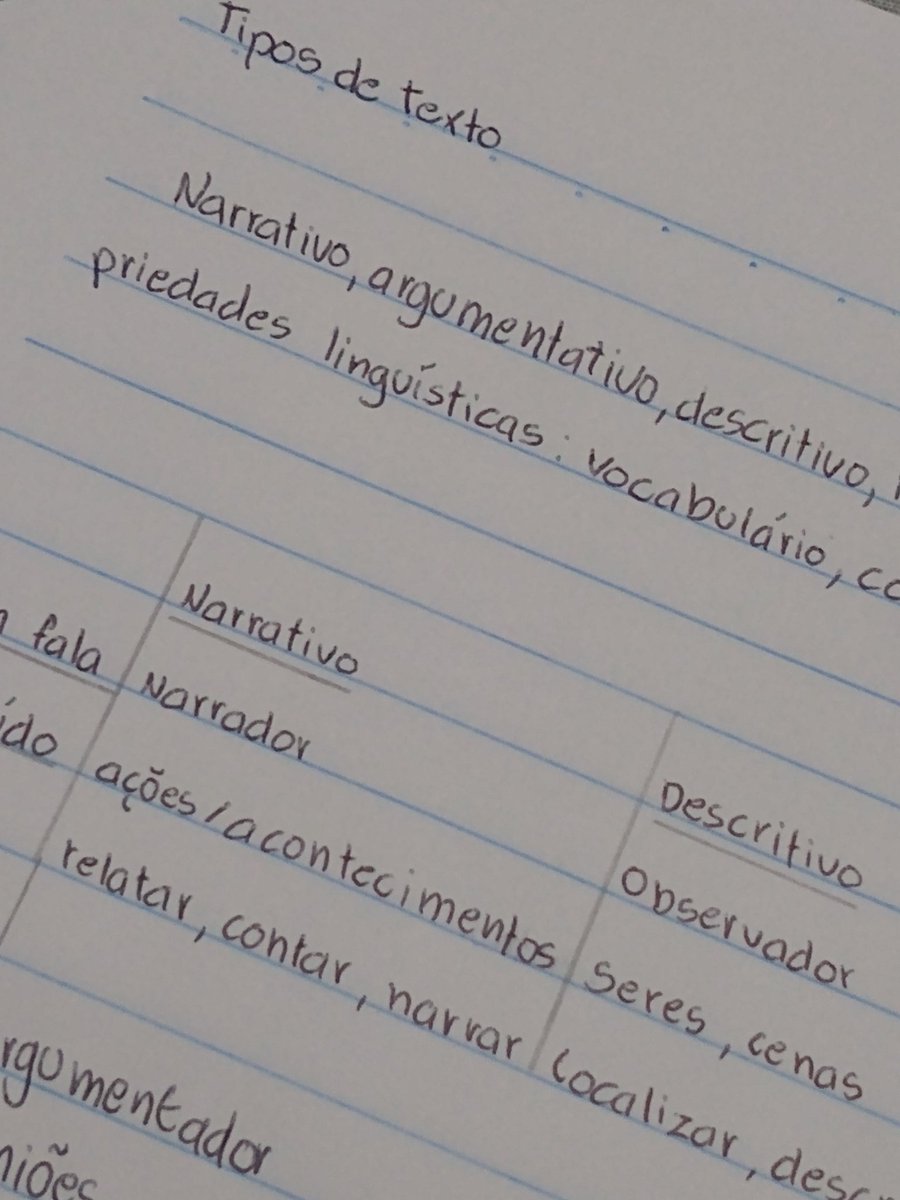 Tipos de texto
Narrativo, argumentativo, descritivo,
priedades linguísticas: vocabulário, co
Narrativo Descritivo
fala Narrador Observador
ído ações/acontecimentos seres, cenas
relatar, contar, narrar localizar, desc
rgumentador
niões